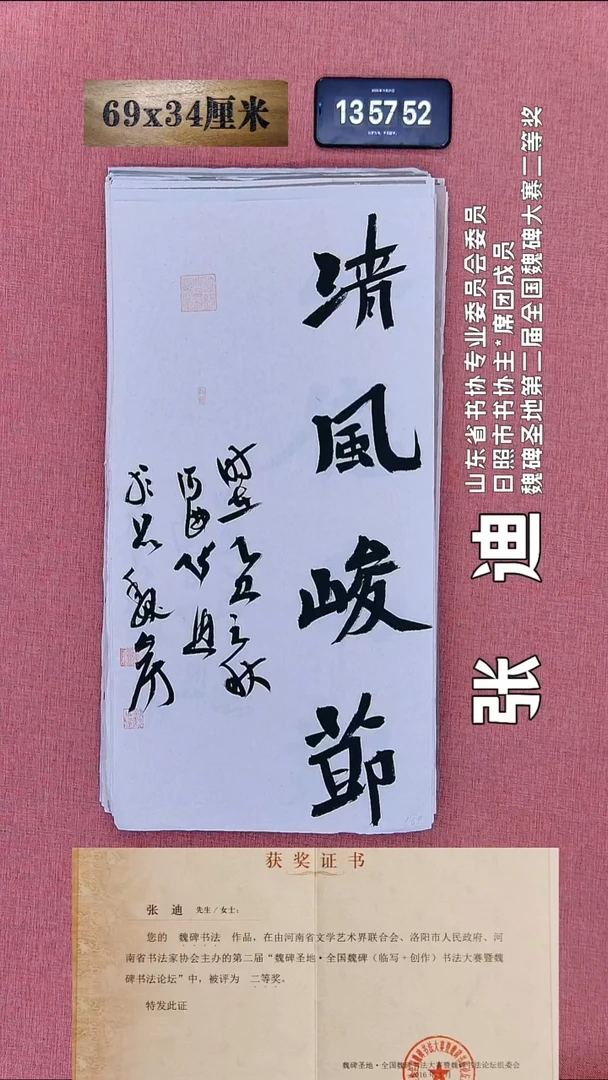 69x34厘米
13 57 52
清風峻節
時在乙巳之秋
張迪
山东省书协专业委员会委员
日照市书协主*席团成员
魏碑圣地第二届全国魏碑大赛二等奖
张 迪
获奖证书
张 迪 先生/女士:
您的 魏碑书法 作品，在由河南省文学艺术界联合会、洛阳市人民政府、河
南省书法家协会主办的第二届“魏碑圣地·全国魏碑（临写+创作）书法大赛暨魏
碑书法论坛”中，被评为 二等奖。
特发此证
魏碑圣地·全国魏碑书法大赛暨魏碑书法论坛组委会